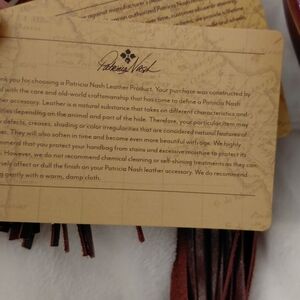 against manufacturer's
Patricia Nash
you for choosing a Patricia Nash Leather Product. Your purchase was constructed by
with the care and old-world craftsmanship that has come to define a Patricia Nash
accessory. Leather is a natural substance that takes on different characteristics and
depending on the animal and part of the hide. Therefore, your particular item may
defects, creases, shading or color irregularities that are considered natural features of
They will also soften in time and become even more beautiful with age. We highly
that you protect your handbag from stains and excessive moisture to protect its
However, we do not recommend chemical cleaning or self-shining treatments as they can
affect or dull the finish on your Patricia Nash leather accessory. We do recommend
gently with a warm, damp cloth.